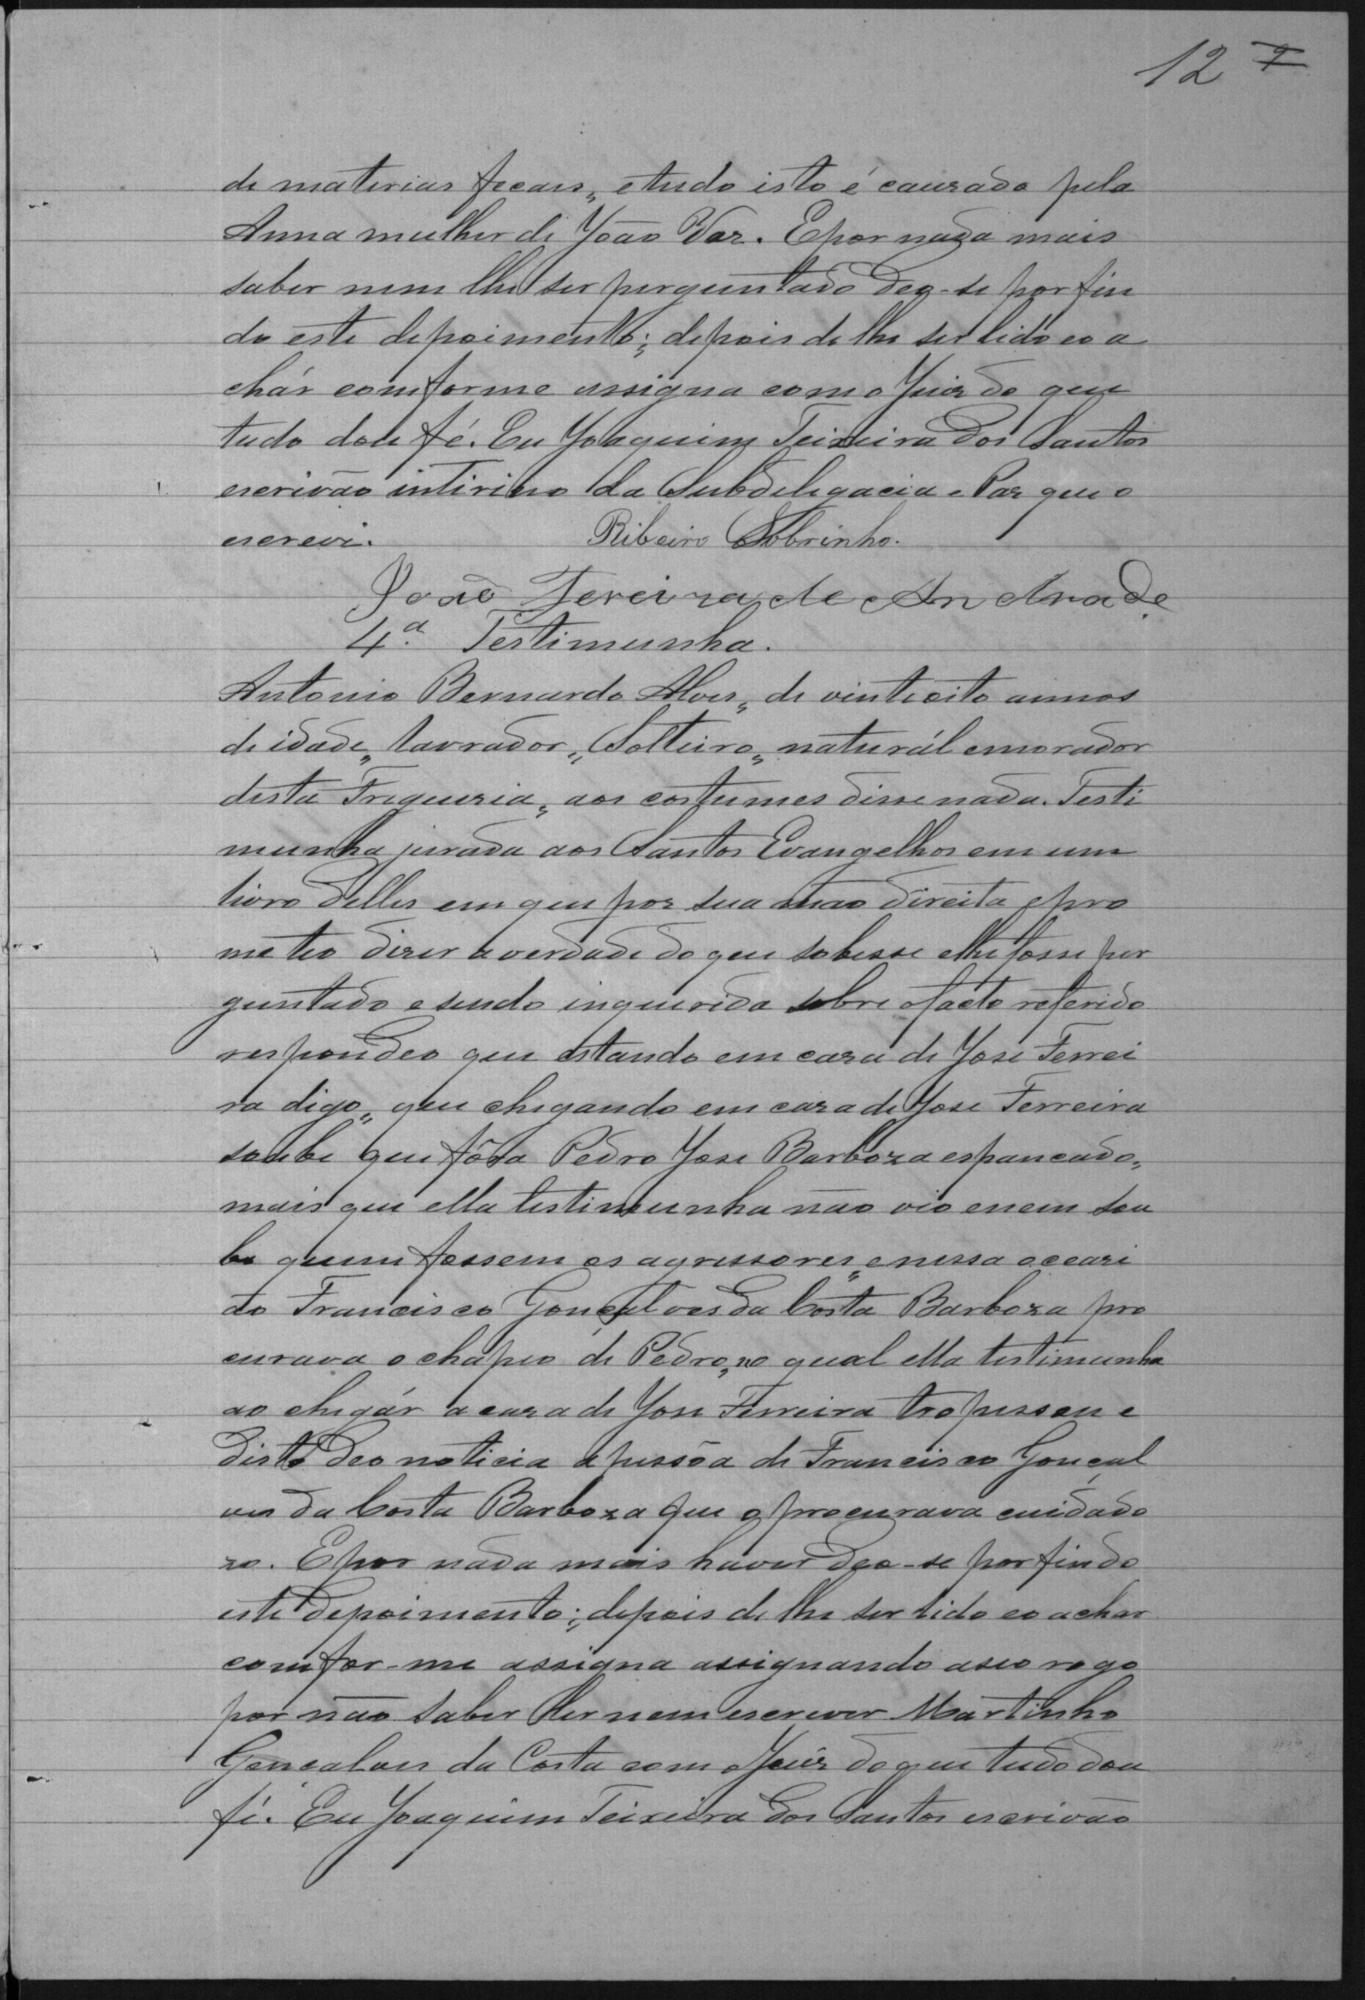 12
de materias fecaes, e tudo isto é cauzado pela
Anna mulher de João Vaz. E por nada mais
saber nem lhe ser perguntado deo-se por fin
do este depoimento; depois de lhe ser lido eo a
chár comforme assigna com o Juiz do que
tudo dou fé. Eu Joaquim Teixeira dos Santos
escrivão intirino da Subdelegacia e Paz que o
escrevi. Ribeiro Sobrinho.
João Pereira de Andrade
4.ª Testimunha.
Antonio Bernardo Alves, de vinte oito annos
de idade, lavrador, Solteiro, naturál e morador
desta Freguezia, aos costumes disse nada. Testi
munha jurada aos Santos Evangelhos em um
livro delles em que pos sua mão direita e pro
meteo dizer a verdade do que sobesse e lhe fosse per
guntado e sendo inquerida sobre o facto referido
respondeo que estando em caza de Jose Ferrei
ra digo, que chegando em caza de Jose Ferreira
soube que fôra Pedro Jose Barboza espancado,
mais que ella testimunha não vio e nem sou
be quem fossem os agressores, e nessa occazi
ão Francisco Gonçalves da Costa Barboza pro
curava o chapeo de Pedro, no qual ella testimunha
ao chegár a caza de Jose Ferreira tropessou e
disto deo noticia a pessôa de Francisco Gonçal
ves da Costa Barboza que o procurava cuidado
zo. E por nada mais haver deo-se por findo
este depoimento; depois de lhe ser lido eo achar
comfor-me assigna assignando a seo rogo
por não saber ler nem escrever Martinho
Gonçalves da Costa com o Juiz do que tudo dou
fé. Eu Joaquim Teixeira dos Santos escrivão